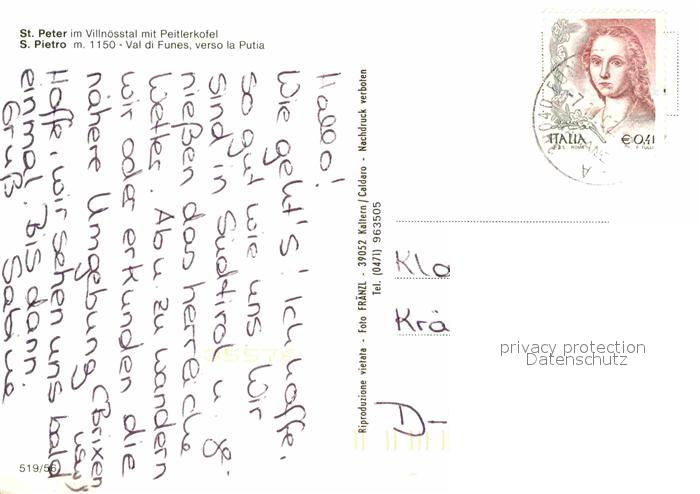 St. Peter im Villnösstal mit Peitlerkofel
S. Pietro m. 1150 - Val di Funes, verso la Putia
Hallo!
Wie geht's! Ich hoffe,
so gut wie uns. Wir
sind in Südtirol u. ge-
nießen das herrliche
Wetter. Ab u. zu wandern
wir oder erkunden die
nähere Umgebung (Brixen
usw)
Hoffe, wir sehen uns bald
einmal. Bis dann.
Gruß Sabine
519/56
Riproduzione vietata - Foto FRÄNZL - 39052 Kaltern/Caldaro - Nachdruck verboten
Tel. (0471) 963505
ITALIA € 0,41
Klo
Krä
D-
privacy protection
Datenschutz